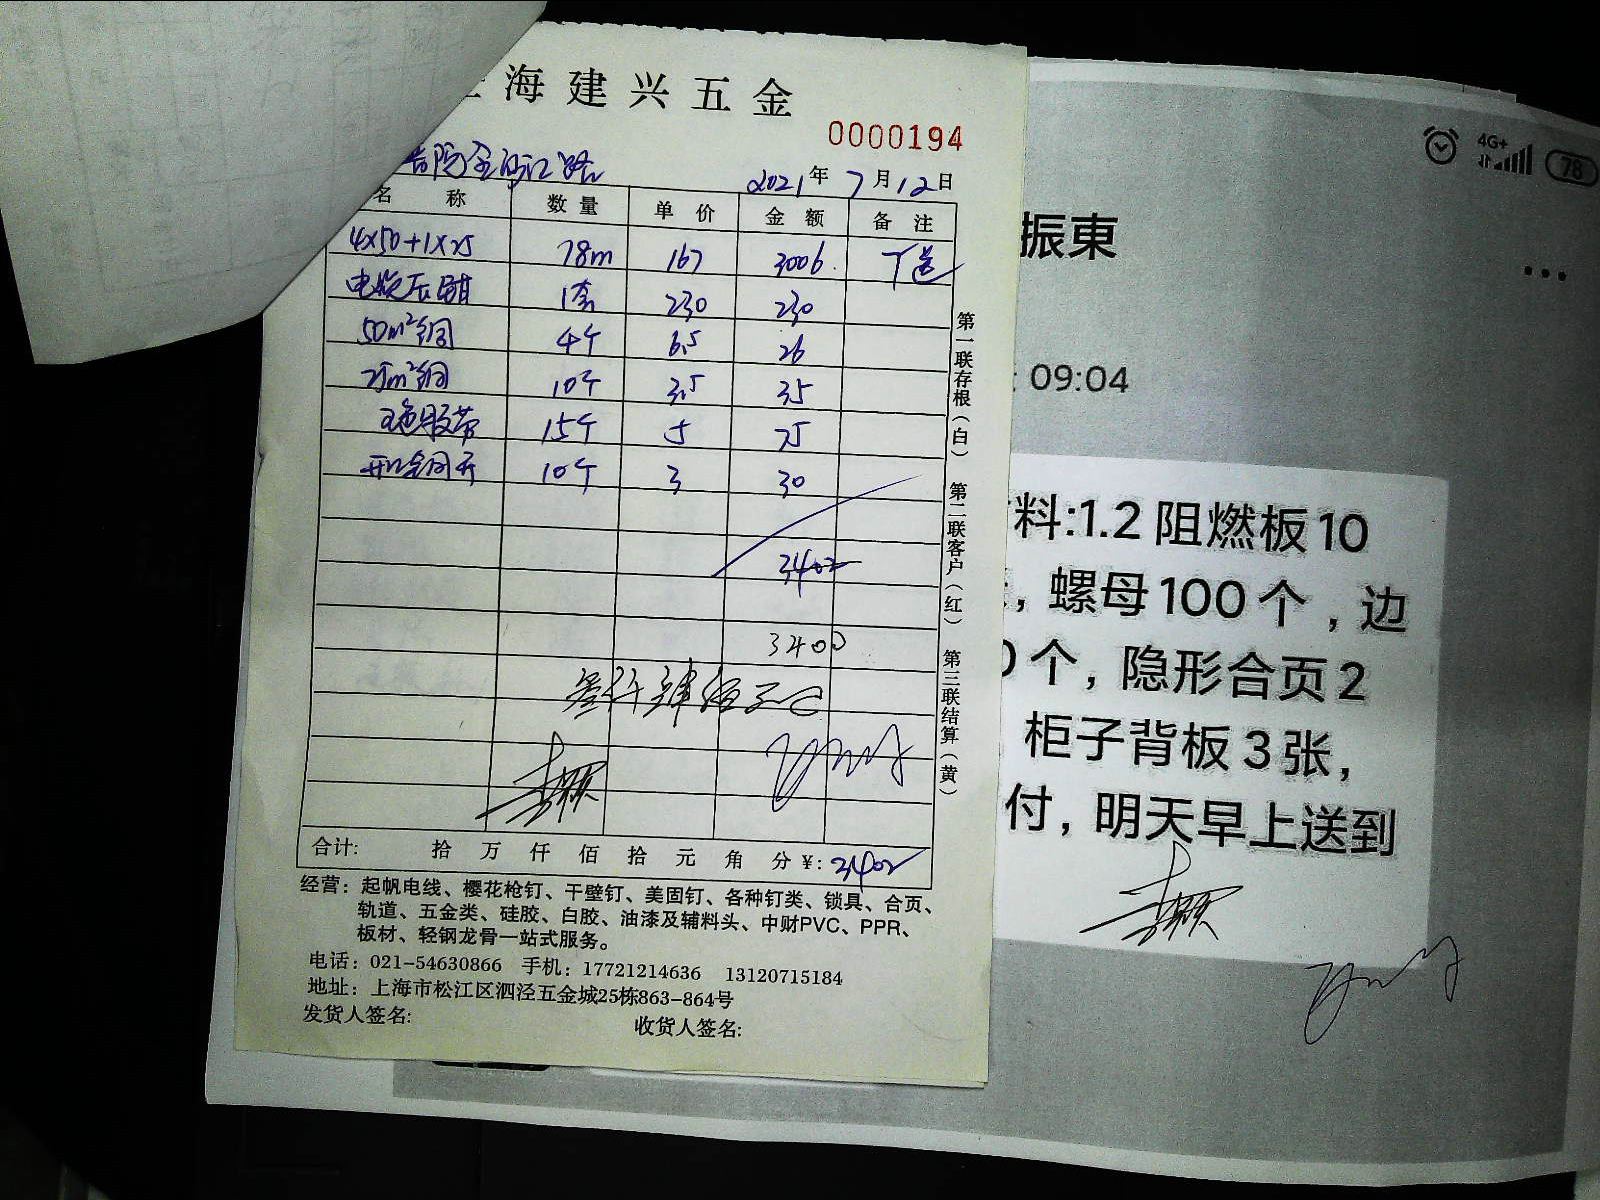 海建兴五金
0000194
2021年7月12日
名称 数量 单价 金额 备注
4x50+1x25 18m 167 3006.
1套 230 230
50m²铜 4个 6.5 26
25m²铜 10个 3.5 35
色胶带 15个 5 75
10个 3 30
3402
3400
叁仟肆佰元
合计: 拾 万 仟 佰 拾 元 角 分 ¥: 3402
第一联存根(白) 第二联客户(红) 第三联结算(黄)
经营: 起帆电线、樱花枪钉、干壁钉、美固钉、各种钉类、锁具、合页、
轨道、五金类、硅胶、白胶、油漆及辅料头、中财PVC、PPR、
板材、轻钢龙骨一站式服务。
电话: 021-54630866 手机: 17721214636 13120715184
地址: 上海市松江区泗泾五金城25栋863-864号
发货人签名: 收货人签名:
4G+ 78
振東
09:04
料:1.2 阻燃板10
, 螺母100个 , 边
0个, 隐形合页2
柜子背板3张,
付, 明天早上送到